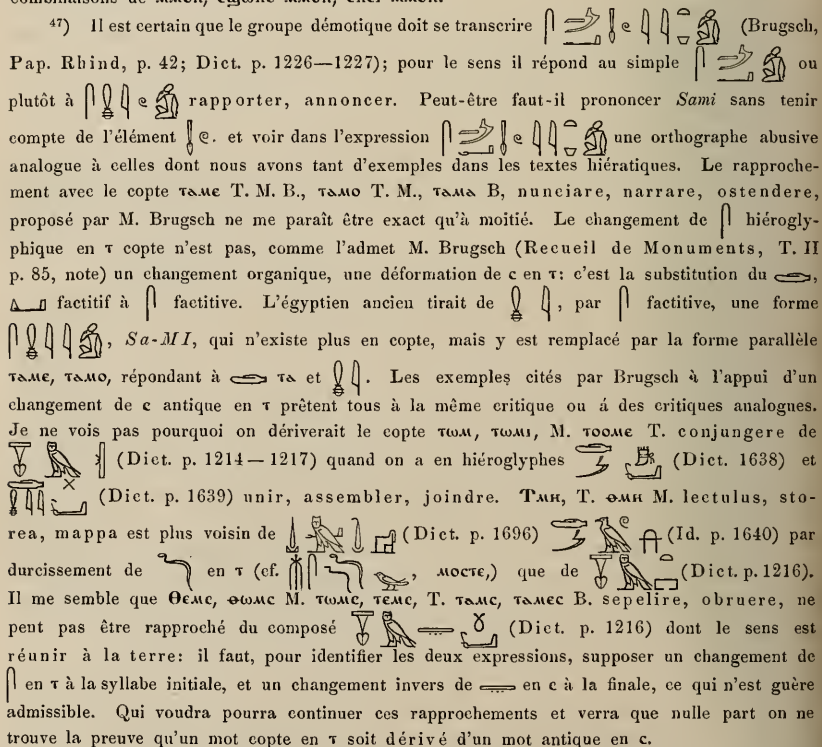 ⁴⁷) Il est certain que le groupe démotique doit se transcrire (Brugsch,
Pap. Rhind, p. 42; Dict. p. 1226—1227); pour le sens il répond au simple ou
plutôt à rapporter, annoncer. Peut-être faut-il prononcer Sami sans tenir
compte de l'élément et voir dans l'expression une orthographe abusive
analogue à celles dont nous avons tant d'exemples dans les textes hiératiques. Le rapproche-
ment avec le copte ⲧⲁⲙⲉ T. M. B., ⲧⲁⲙⲟ T. M., ⲧⲁⲙⲁ B, nunciare, narrare, ostendere,
proposé par M. Brugsch ne me paraît être exact qu'à moitié. Le changement de 𓋴 hiérogly-
phique en ⲧ copte n'est pas, comme l'admet M. Brugsch (Recueil de Monuments, T. II
p. 85, note) un changement organique, une déformation de ⲥ en ⲧ: c'est la substitution du 𓂞,
𓂙 factitif à 𓋴 factitive. L'égyptien ancien tirait de 𓄟 𓇋, par 𓋴 factitive, une forme
𓋴𓄟𓇋𓇋𓀁, Sa-MI, qui n'existe plus en copte, mais y est remplacé par la forme parallèle
ⲧⲁⲙⲉ, ⲧⲁⲙⲟ, répondant à 𓂞 ⲧⲁ et 𓄟𓇋. Les exemples cités par Brugsch à l'appui d'un
changement de ⲥ antique en ⲧ prêtent tous à la même critique ou á des critiques analogues.
Je ne vois pas pourquoi on dériverait le copte ⲧⲱⲙ, ⲧⲱⲙⲓ, M. ⲧⲟⲟⲙⲉ T. conjungere de
(Dict. p. 1214—1217) quand on a en hiéroglyphes (Dict. 1638) et
(Dict. p. 1639) unir, assembler, joindre. Ⲧⲙⲏ, T. ⲑⲙⲏ M. lectulus, sto-
rea, mappa est plus voisin de (Dict. p. 1696) (Id. p. 1640) par
durcissement de 𓆓 en ⲧ (cf. ⲙⲟⲥⲧⲉ,) que de (Dict. p. 1216).
Il me semble que Ⲑⲉⲙⲥ, ⲑⲱⲙⲥ M. ⲧⲱⲙⲥ, ⲧⲉⲙⲥ, T. ⲧⲁⲙⲥ, ⲧⲁⲙⲉⲥ B. sepelire, obruere, ne
peut pas être rapproché du composé (Dict. p. 1216) dont le sens est
réunir à la terre: il faut, pour identifier les deux expressions, supposer un changement de
𓋴 en ⲧ à la syllabe initiale, et un changement invers de 𓇾 en ⲥ à la finale, ce qui n'est guère
admissible. Qui voudra pourra continuer ces rapprochements et verra que nulle part on ne
trouve la preuve qu'un mot copte en ⲧ soit dérivé d'un mot antique en ⲥ.